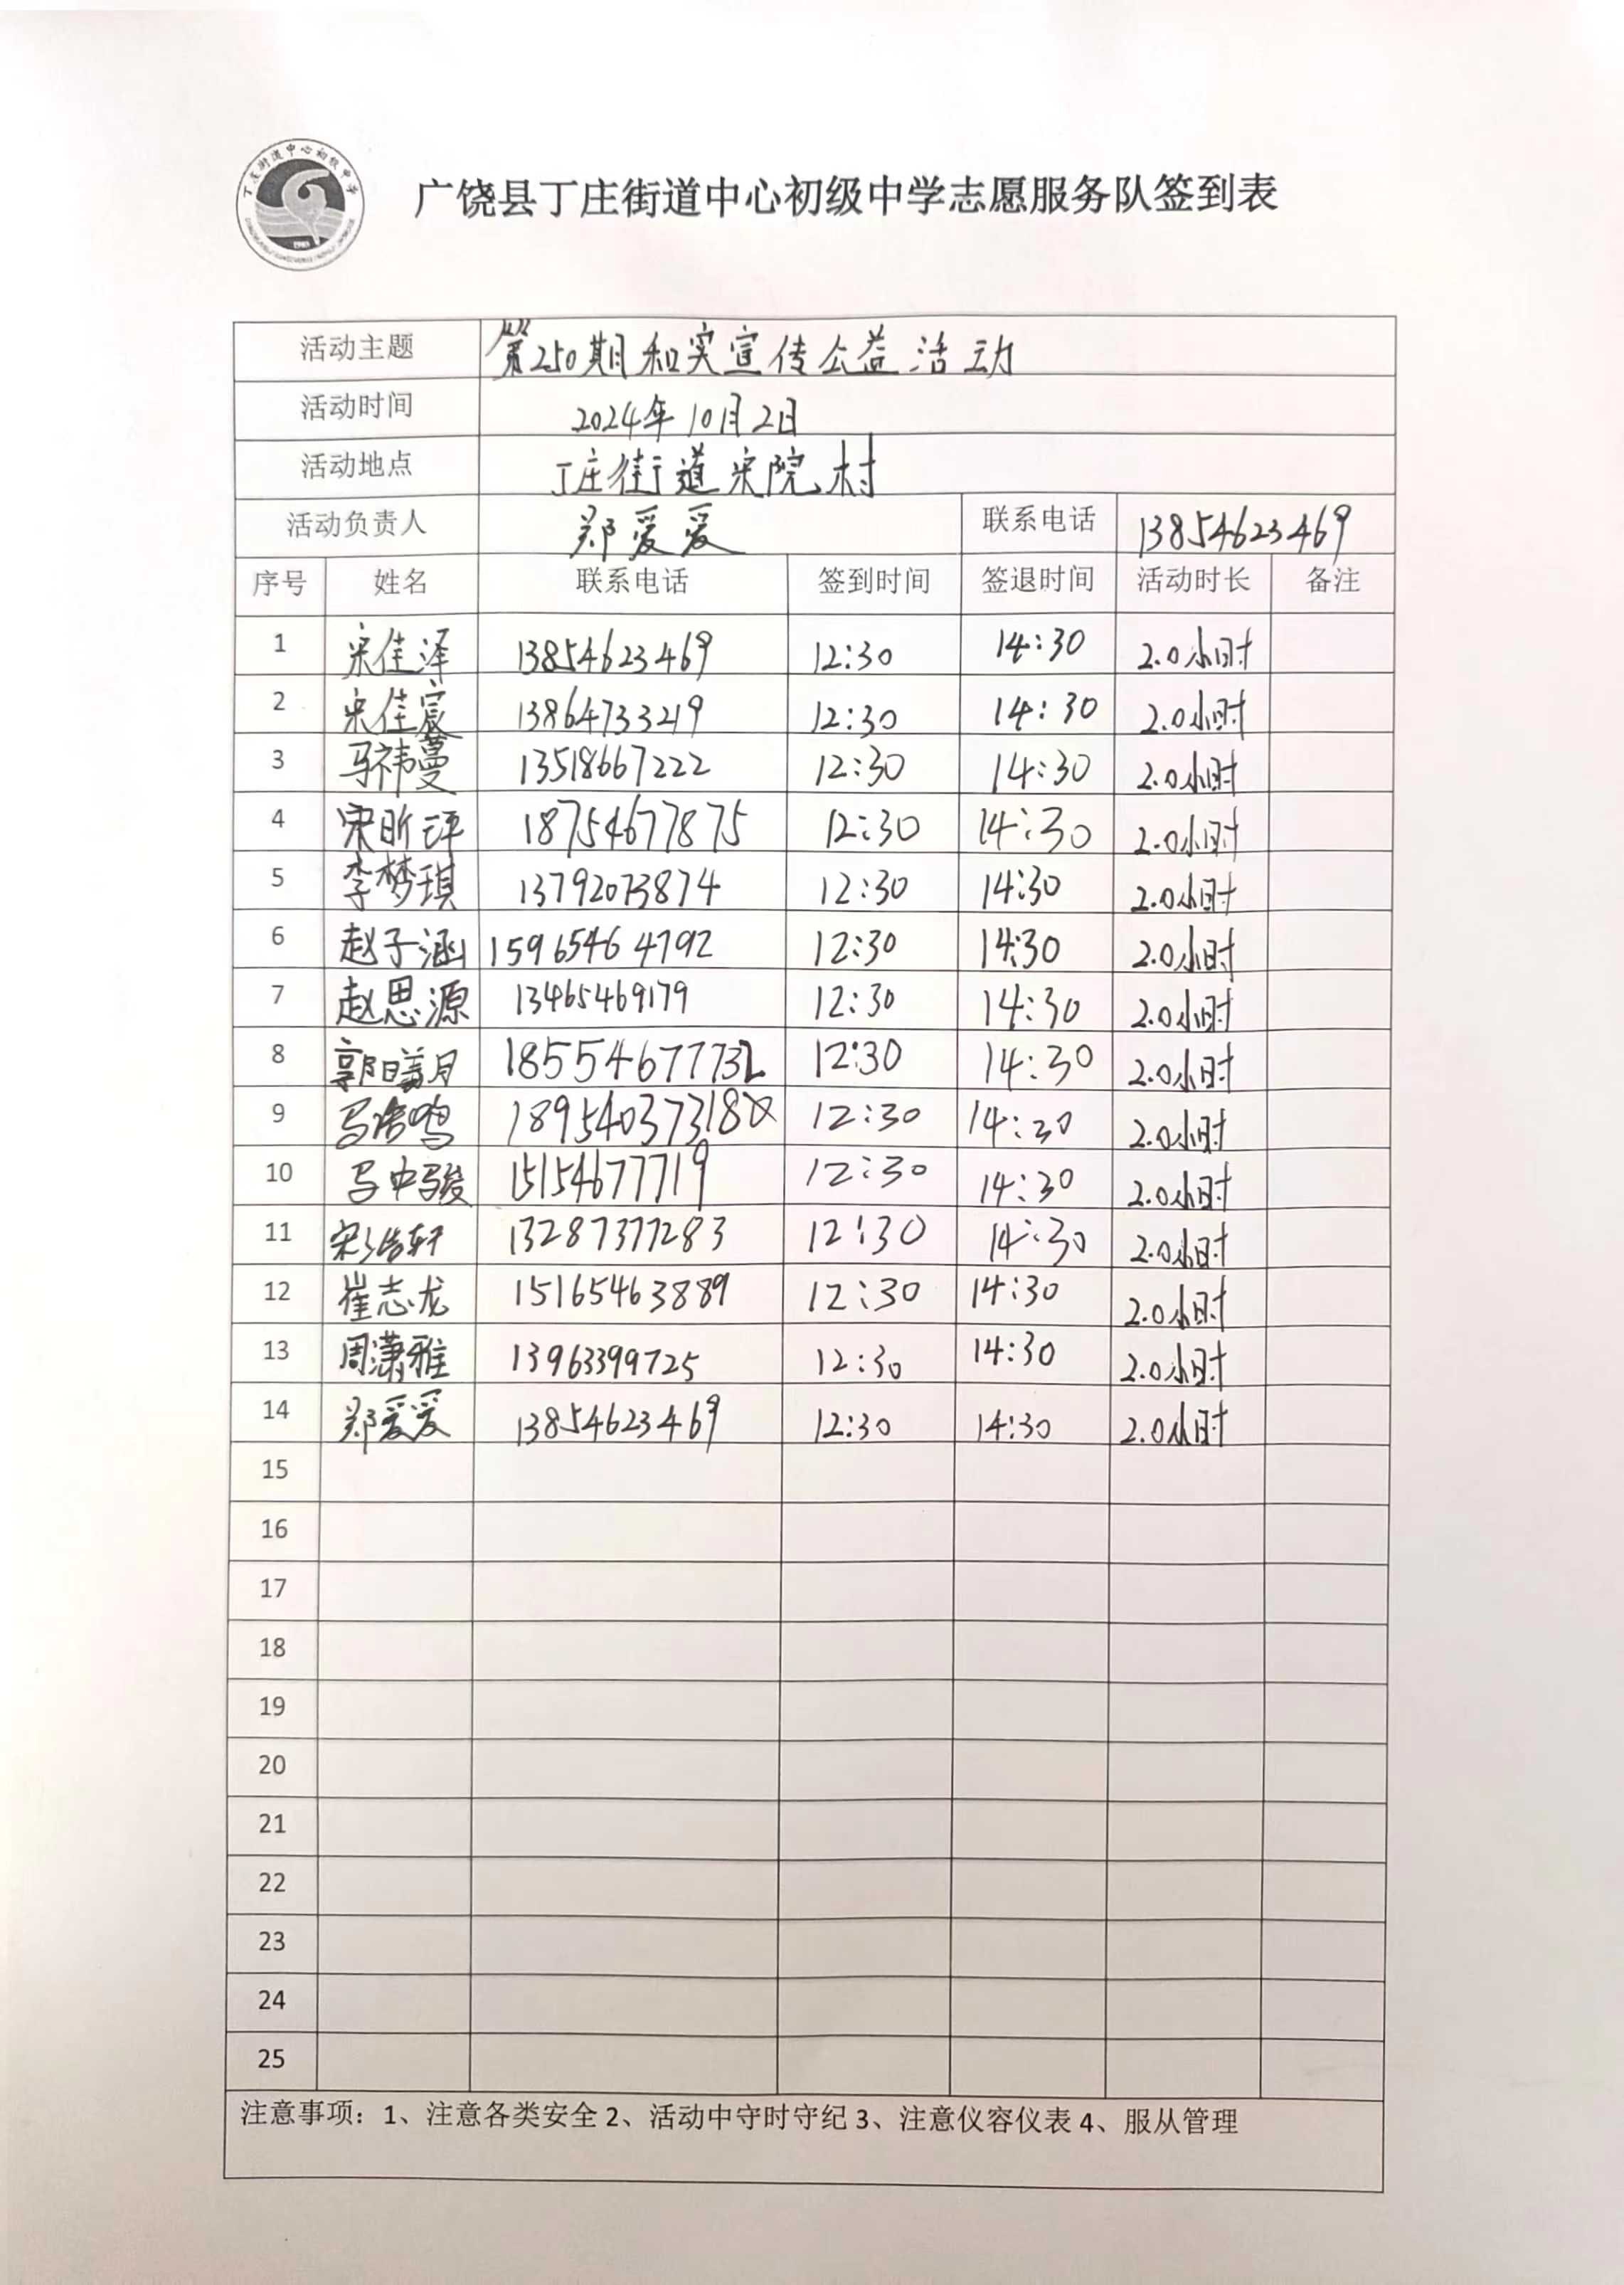 丁庄街道中心初级中学
1983
广饶县丁庄街道中心初级中学志愿服务队签到表
活动主题 第250期和实宣传公益活动
活动时间 2024年10月2日
活动地点 丁庄街道宋院村
活动负责人 郑爱爱 联系电话 13854623469
序号 姓名 联系电话 签到时间 签退时间 活动时长 备注
1 宋佳泽 13854623469 12:30 14:30 2.0小时
2 宋佳宸 13864733219 12:30 14:30 2.0小时
3 马祎蔓 13518667222 12:30 14:30 2.0小时
4 宋昕 18754677875 12:30 14:30 2.0小时
5 李梦琪 13792073874 12:30 14:30 2.0小时
6 赵子涵 15965464792 12:30 14:30 2.0小时
7 赵思源 13465469179 12:30 14:30 2.0小时
8 郭 月 18554677732 12:30 14:30 2.0小时
9 马浩鸣 18954037318 12:30 14:30 2.0小时
10 马中骏 15154677719 12:30 14:30 2.0小时
11 宋浩轩 13287377283 12:30 14:30 2.0小时
12 崔志龙 15165463889 12:30 14:30 2.0小时
13 周潇雅 13963399725 12:30 14:30 2.0小时
14 郑爱爱 13854623469 12:30 14:30 2.0小时
15
16
17
18
19
20
21
22
23
24
25
注意事项：1、注意各类安全 2、活动中守时守纪 3、注意仪容仪表 4、服从管理